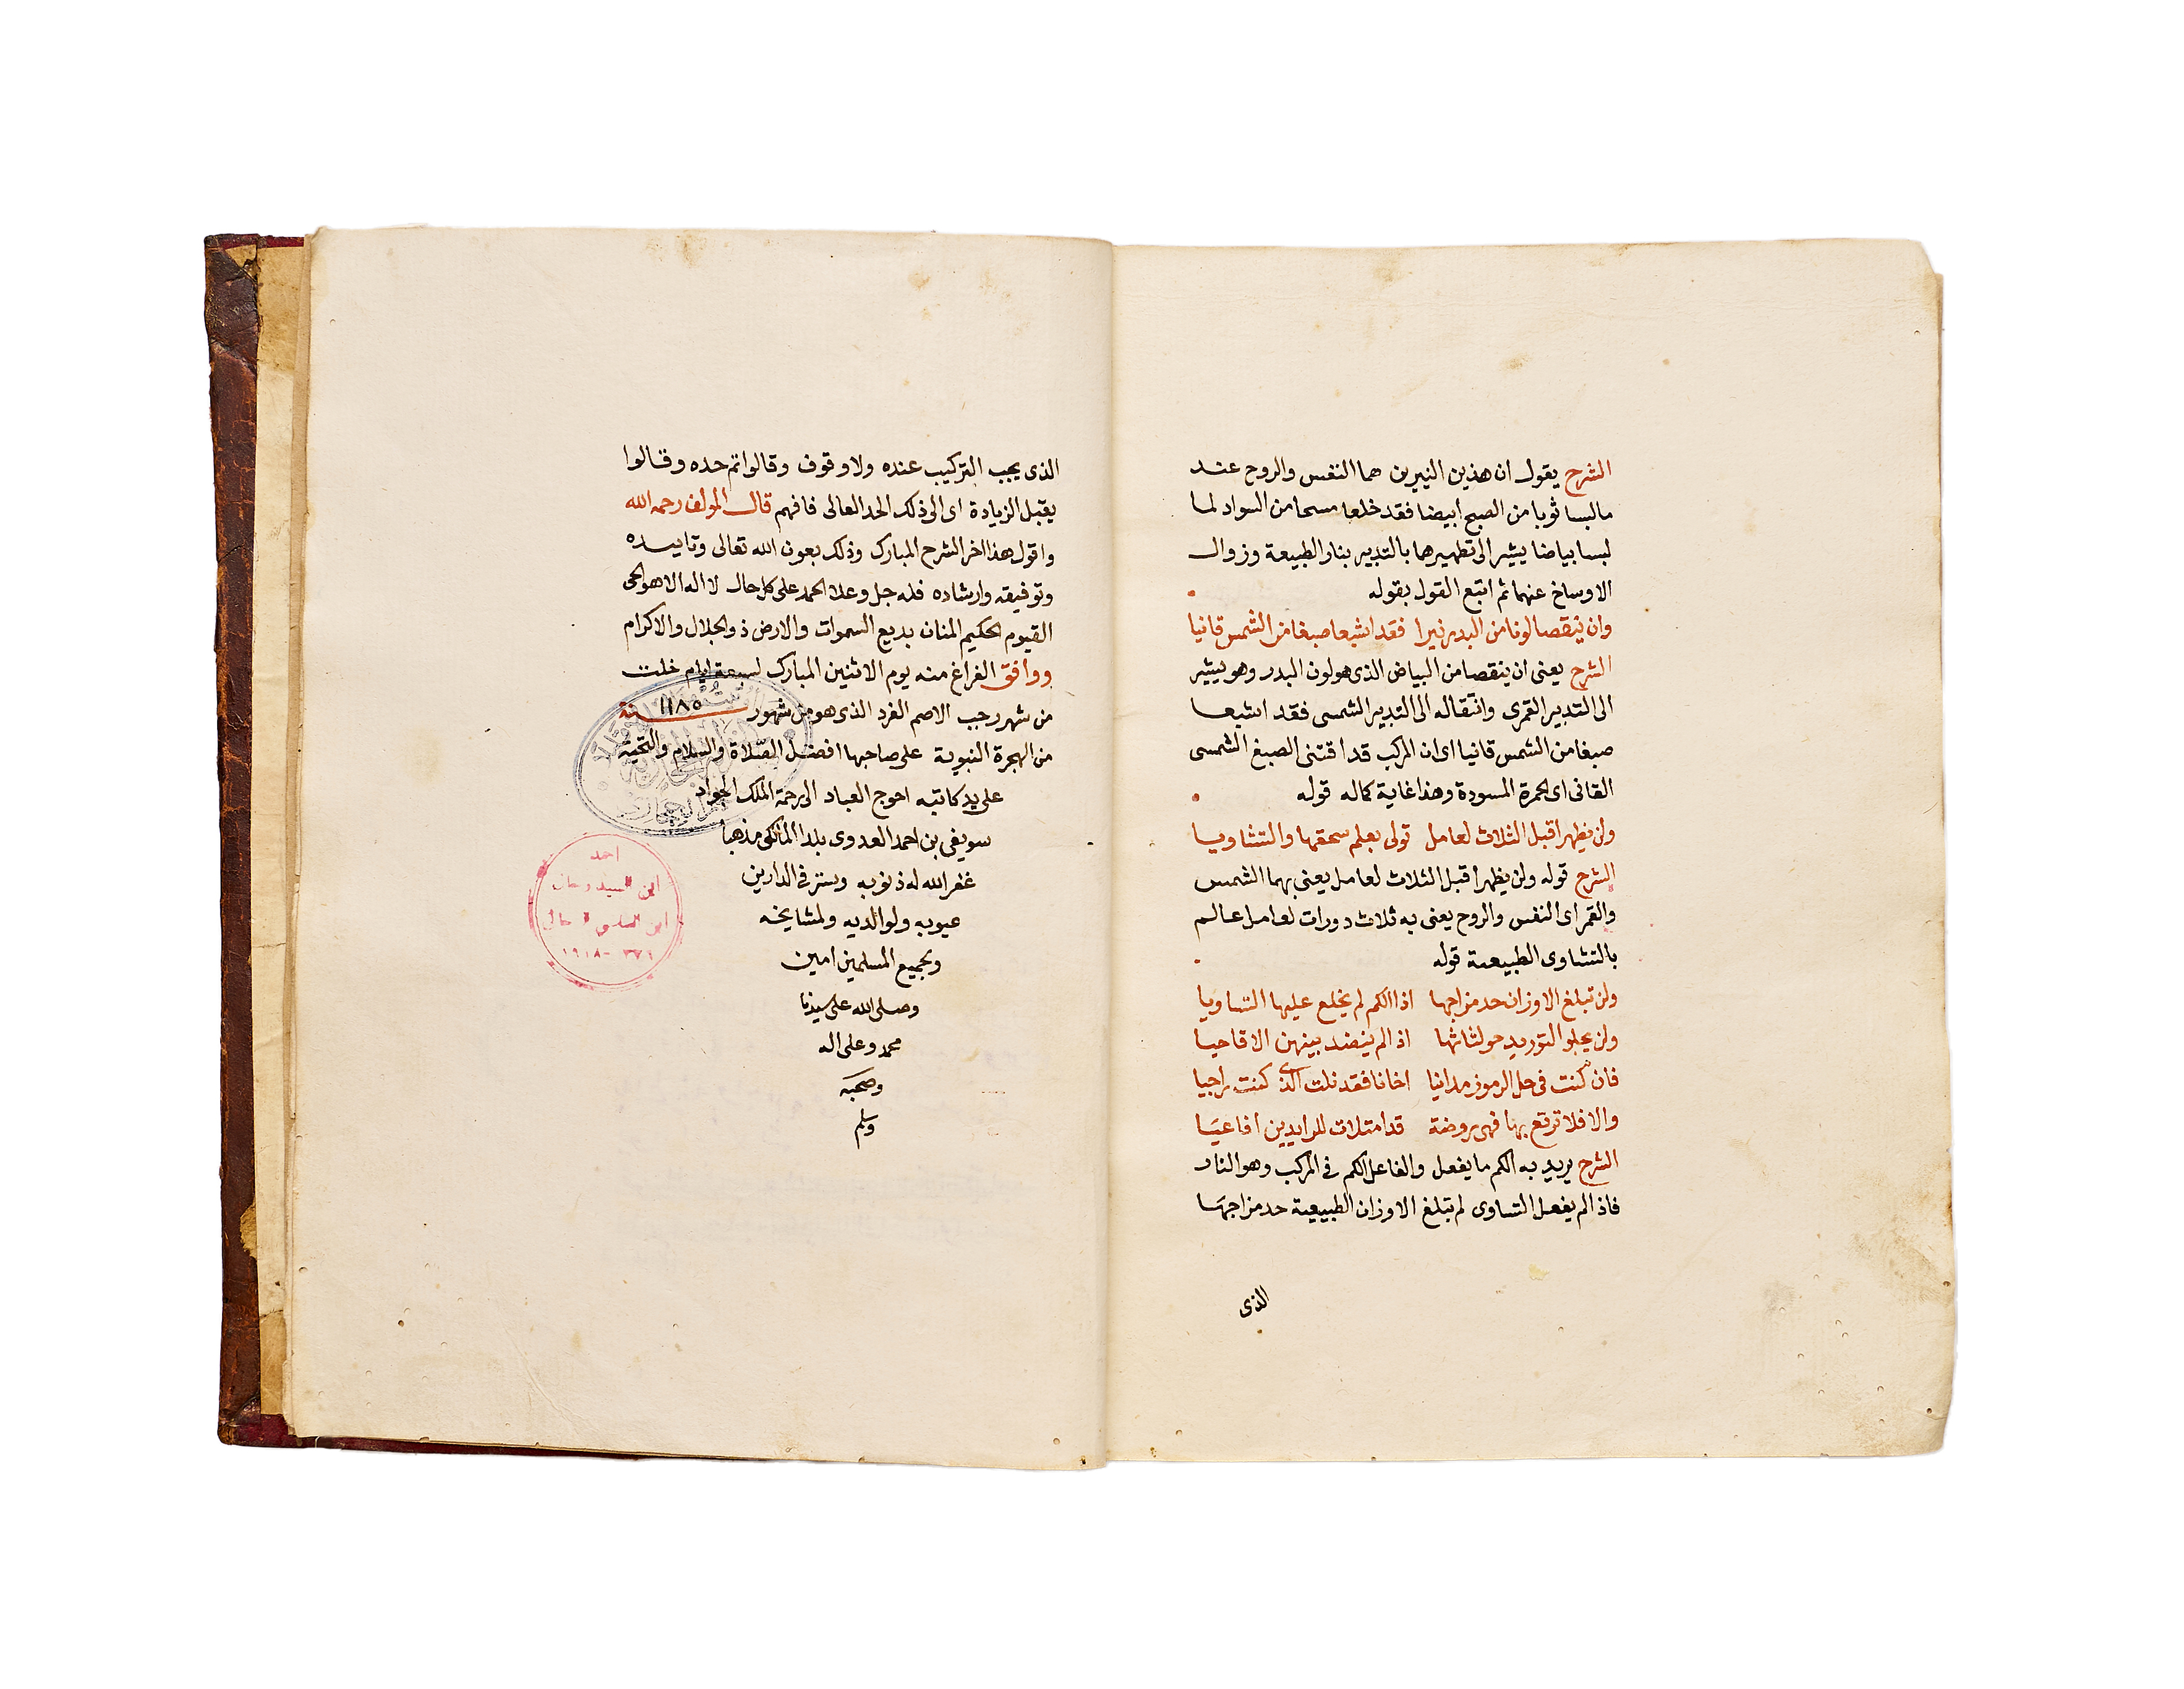 الشرح يقول ان هذين النيرين هما النفس والروح عند
مالبسا ثوبا من الصبح ابيضا فقد خلعا مسحا من السواد لما
لبسا بياضا يشير الى تطهيرهما بالتدبير بنار الطبيعة وزوال
الاوساخ عنهما ثم اتبع القول بقوله
وان ينقصا لونا من البدر نيرا فقد اشبعا صبغا من الشمس قانيا
الشرح يعنى ان ينقصا من البياض الذى هو لون البدر وهو يشير
الى التدبير القمرى وانتقاله الى التدبير الشمسى فقد اشبعا
صبغا من الشمس قانيا اى ان المركب قد اقتنى الصبغ الشمسى
القانى اى الحمرة المسودة وهذا غاية كماله قوله
ولن يظهرا قبل الثلاث لعامل تولى بعلم سحقها والتشاويا
الشرح قوله ولن يظهرا قبل الثلاث لعامل يعنى بهما الشمس
والقمر اى النفس والروح يعنى به ثلاث دورات لعامل عالم
بالتشاوى الطبيعية قوله
ولن تبلغ الاوزان حد مزاجها اذا الكم لم يخلع عليها التساويا
ولن يجلو التوريد حو لثاثها اذا لم ينضد بينهن الاقاحيا
فان كنت فى حل الرموز مدانيا اخانا فقد نلت الذى كنت راجيا
والا فلا ترتع بها فهى روضة قد امتلات للرايدين افاعيا
الشرح يريد به الكم ما يفعل والفاعل الكم فى المركب وهو النار
فاذا لم يفعل التساوى لم تبلغ الاوزان الطبيعية حد مزاجها
الذى
الذى يجب التركيب عنده ولا وقوف وقالوا تم حده وقالوا
يقبل الزيادة اى الى ذلك الحد العالى فافهم قال المولف رحمه الله
واقول هذا اخر الشرح المبارك وذلك بعون الله تعالى وتاييده
وتوفيقه وارشاده فله جل وعلا الحمد على كل حال لا اله الا هو الحى
القيوم الحكيم المنان بديع السموات والارض ذو الجلال والاكرام
ووافق الفراغ منه يوم الاثنين المبارك لسبعة ايام خلت
من شهر رجب الاصم الفرد الذى هو من شهور سنة ١١٨٥
من الهجرة النبوية على صاحبها افضل الصلاة والسلام والتحية
على يد كاتبه احوج العباد الى رحمة الملك الجواد
سويفى بن احمد العدوى بلدا المالكى مذهبا
غفر الله له ذنوبه وستر فى الدارين
عيوبه ولوالديه ولمشايخه
ولجميع المسلمين امين
وصلى الله على سيدنا
محمد وعلى اله
وصحبه
وسلم
احمد
ابن السيد